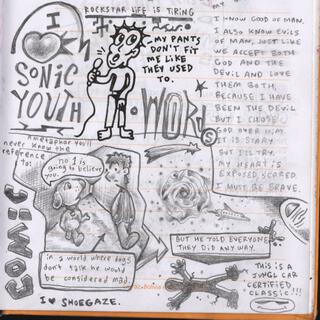 ROCKSTAR LIFE IS TIRING
I
SONIC
YOUTH
MY PANTS
DON'T FIT
ME LIKE
THEY USED
TO.
WORDS
MY
I KNOW GOOD OF MAN,
I ALSO KNOW EVILS
OF MAN, JUST LIKE
WE ACCEPT BOTH
GOD AND THE
DEVIL AND LOVE
THEM BOTH,
BECAUSE I HAVE
BEEN THE DEVIL
BUT I CHOOSE
GOD OVER HIM.
IT IS SCARY
BUT I'LL TRY.
MY HEART IS
EXPOSED, SCARED.
I MUST BE BRAVE.
A metaphor you'll
never know the
reference to:
COMIC
no 1 is
going to believe
you.
in a world where dogs
don't talk he would
be considered mad.
BUT HE TOLD EVERYONE
THEY DID ANYWAY.
I SHOEGAZE.
THIS IS A
JUNGL CAR
CERTIFIED
CLASSIC!!!